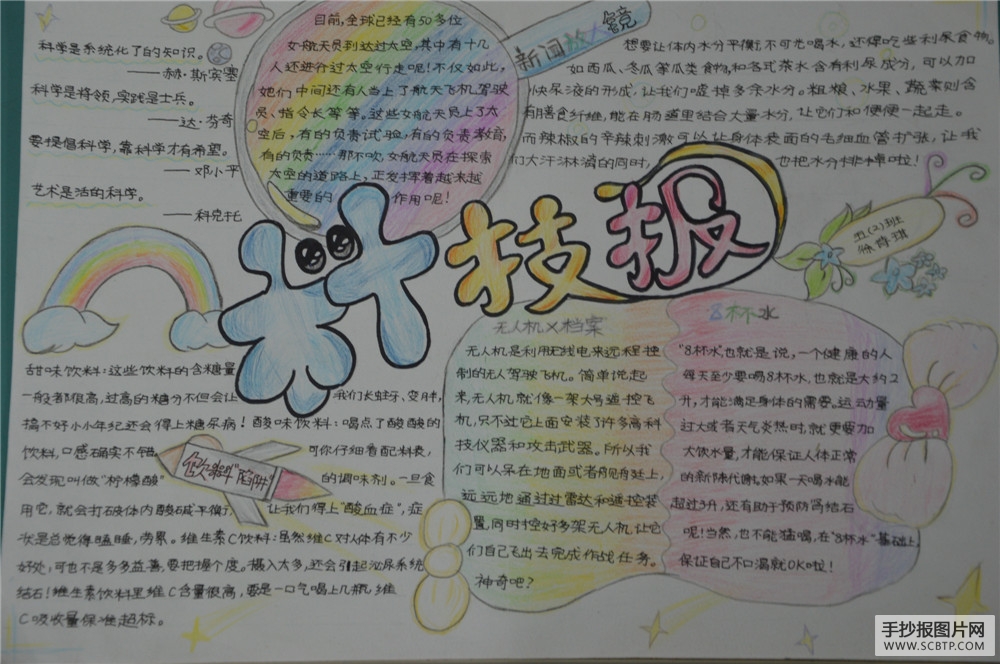 科学是系统化了的知识。
——赫·斯宾塞
科学是将领,实践是士兵。
——达·芬奇
要提倡科学,靠科学才有希望。
——邓小平
艺术是活的科学。
——科克托
目前,全球已经有50多位
女航天员到达过太空,其中有十几
人还进行过太空行走呢!不仅如此,
她们中间还有人当上了航天飞机驾驶
员、指令长等等。这些女航天员上了太
空后,有的负责试验,有的负责教育,
有的负责……那不吹,女航天员在探索
太空的道路上,正发挥着越来越
重要的 作用呢!
新闻放大镜
想要让体内水分平衡,不可光喝水,还得吃些利尿食物。
如西瓜、冬瓜等瓜类食物,和各式茶水含有利尿成分,可以加
快尿液的形成,让我们嘘掉多余水分。粗粮、水果、蔬菜则含
有膳食纤维,能在肠道里结合大量水分,让它们和便便一起走。
而辣椒的辛辣刺激可以让身体表面的毛细血管扩张,让我
们大汗淋漓的同时, 也把水分排掉啦!
科技报
五(2)班
甜味饮料:这些饮料的含糖量
一般都很高,过高的糖分不但会让 我们长蛀牙、变胖,
搞不好小小年纪还会得上糖尿病!酸味饮料:喝点了酸酸的
饮料,口感确实不错。 可你仔细看配料表,
会发现叫做“柠檬酸” 的调味剂。一旦食
用它,就会打破体内酸碱平衡, 让我们得上“酸血症”,症
状是总觉得瞌睡,劳累。维生素C饮料:虽然维C对人体有不少
好处,可也不是多多益善,要把握个度。摄入太多,还会引起泌尿系统
结石!维生素饮料里维C含量很高,要是一口气喝上几瓶,维
C吸收量保准超标。
饮料“陷阱”
无人机X档案
无人机是利用无线电来远程控
制的无人驾驶飞机。简单说起
来,无人机就像一架大号遥控飞
机,只不过它上面安装了许多高科
技仪器和攻击武器。所以我
们可以呆在地面或者舰艇上,
远远地通过过雷达和遥控装
置,同时控好多架无人机,让它
们自己飞出去完成作战任务。
神奇吧?
8杯水
“8杯水”也就是说,一个健康的人
每天至少要喝8杯水,也就是大约2
升,才能满足身体的需要。运动量
过大或者天气炎热时,就更要加
大饮水量,才能保证人体正常
的新陈代谢,如果一天喝水能
超过3升,还有助于预防肾结石
呢!当然,也不能猛喝,在“8杯水”基础上,
保证自己不口渴就OK啦!
手抄报图片网
WWW.SCBTP.COM